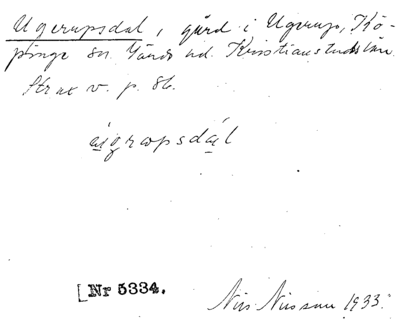 Ugerupsdal, gård i Ugerup, Kö-
pinge sn. Gärds hd. Kristianstads län.
Strax v. p. 86.
ugrupsdal
[Nr 5334.
Nils Nilsson 1933.